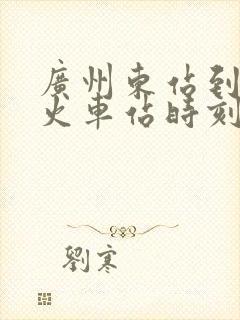 廣州東佔到
火車佔時刻
劉寒